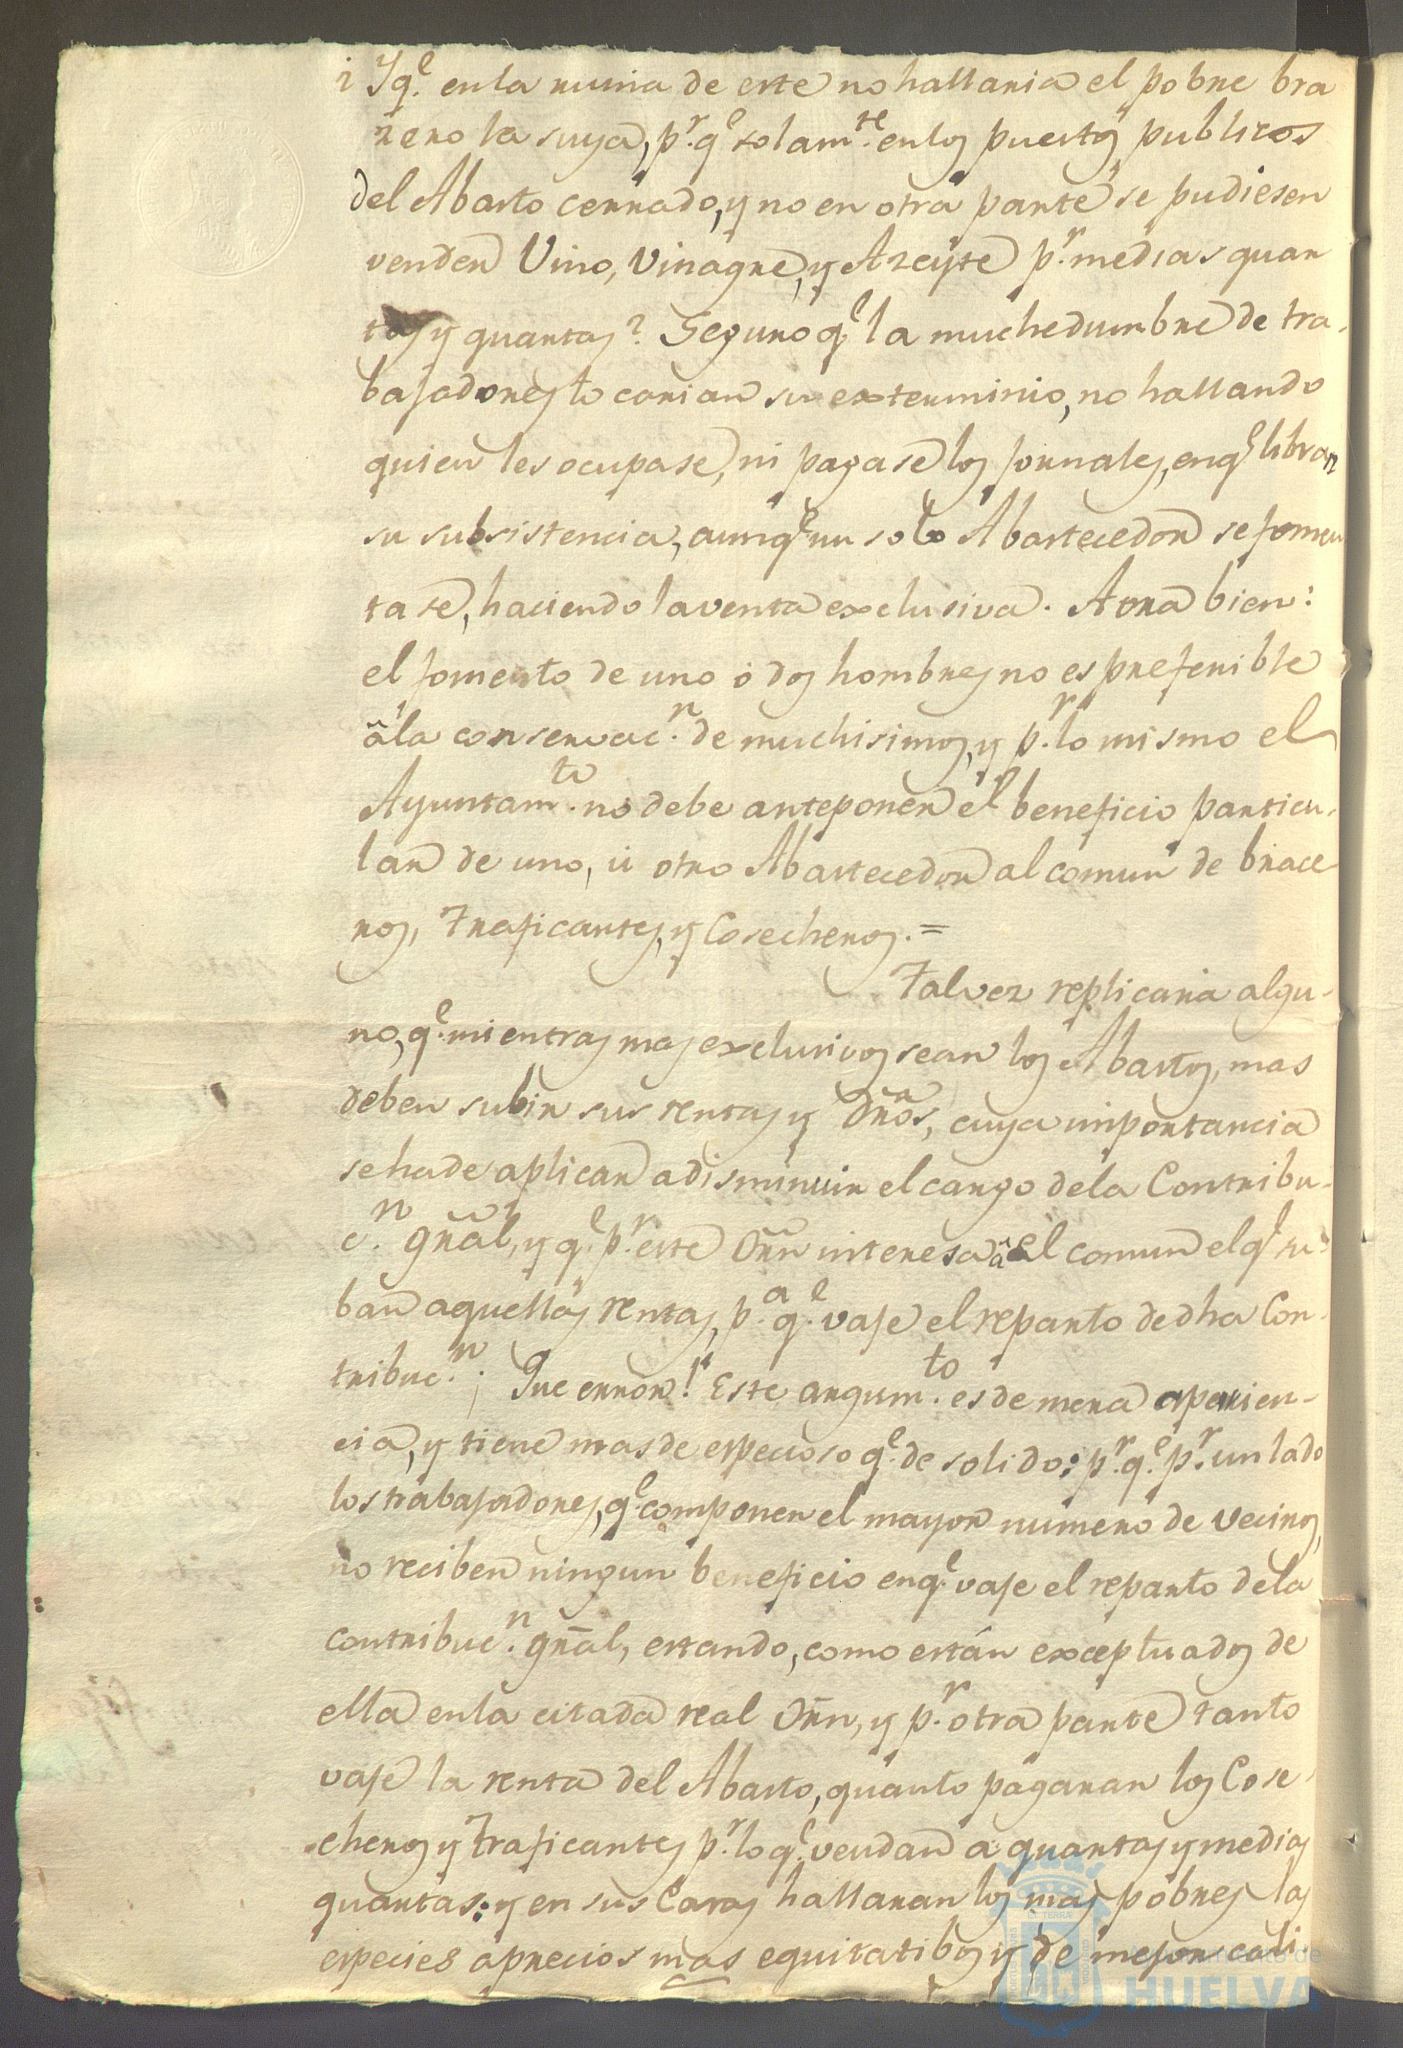 ¿ Y q.e en la ruina de este no hallaria el pobre bra
zero la suya, p.r q.e solam.te en los puestos publicos
del Abasto cerrado, y no en otra parte se pudiesen
vender Vino, Vinagre, y Azeyte p.r medias quar
tas y quartas? Seguro q.e la muchedumbre de tra-
bajadores tocarian su exterminio, no hallando
quien les ocupase, ni pagase los jornales, en q.e libran
su subsistencia, aunq.e un solo Abastecedor se fomen
tase, haciendo la venta exclusiva. Aora bien:
el fomento de uno ó dos hombres no es preferible
â la conservac.n de muchisimos, y p.r lo mismo el
Ayuntam.to no debe anteponer el beneficio particu-
lar de uno, ú otro Abastecedor al comun de brace
ros, Traficantes, y Cosecheros.=
Talvez replicaria algu-
no, q.e mientras mas exclusivos sean los Abastos, mas
deben subir sus rentas y Dr̃os, cuya importancia
se ha de aplicar a disminuir el cargo de la Contribu-
c.n gñal, y q.e p.r este Orñ interesa â el comun el q.e su-
ban aquellas rentas, p.a q.e vaje el reparto de dha Con-
tribuc.n ¡Que error! Este argum.to es de mera aparien-
cia, y tiene mas de especioso q.e de solido: p.r q.e p.r un lado
los trabajadores, q.e componen el mayor numero de vecinos,
no reciben ningun beneficio en q.e vaje el reparto de la
contribuc.n gñal, estando, como están exceptuados de
ella en la citada real Orñ, y p.r otra parte tanto
vaje la renta del Abasto, quanto pagaran los Cose-
cheros y Traficantes p.r lo q.e vendan a quartas y medias
quartas: y en sus Casas hallaran los mas pobres las
especies a precios mas equitatibos y de mejor cali-
Ayuntamiento de
HUELVA